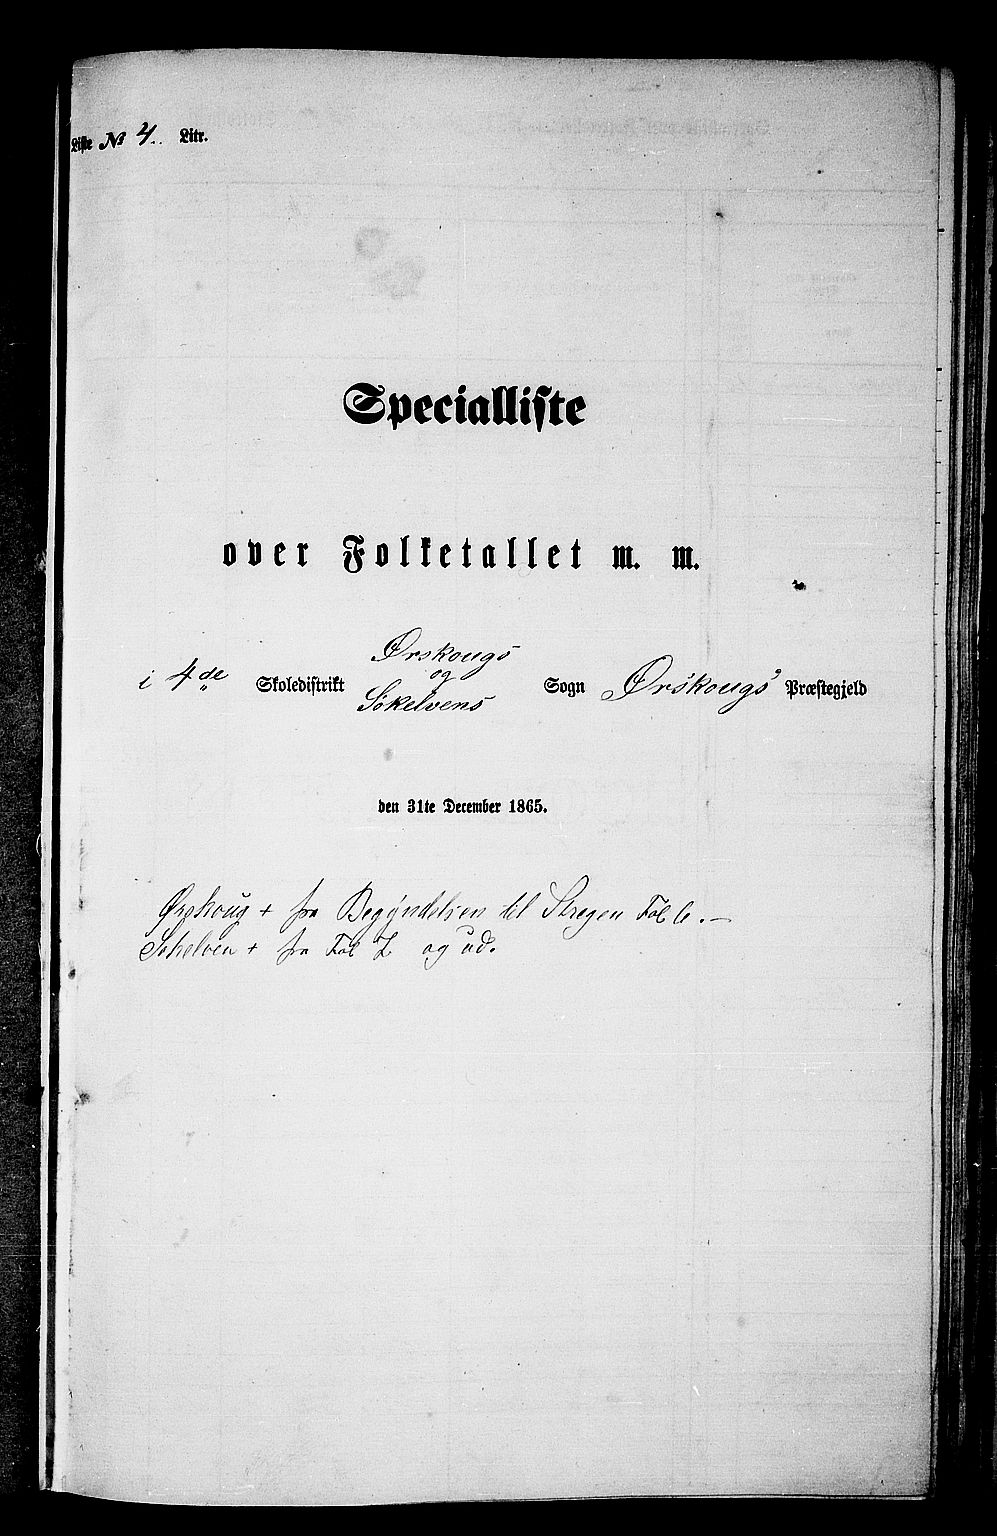 Liste № 4. Litr.
Specialliste
over Folketallet m. m.
i 4de Skoledistrikt Ørskougs og Søkelvens Sogn Ørskougs Præstegjeld
den 31te December 1865.
Ørskoug + fra Begyndelsen til Stregen Fol 6. —
Søkelven + fra Fol 7 og ud.